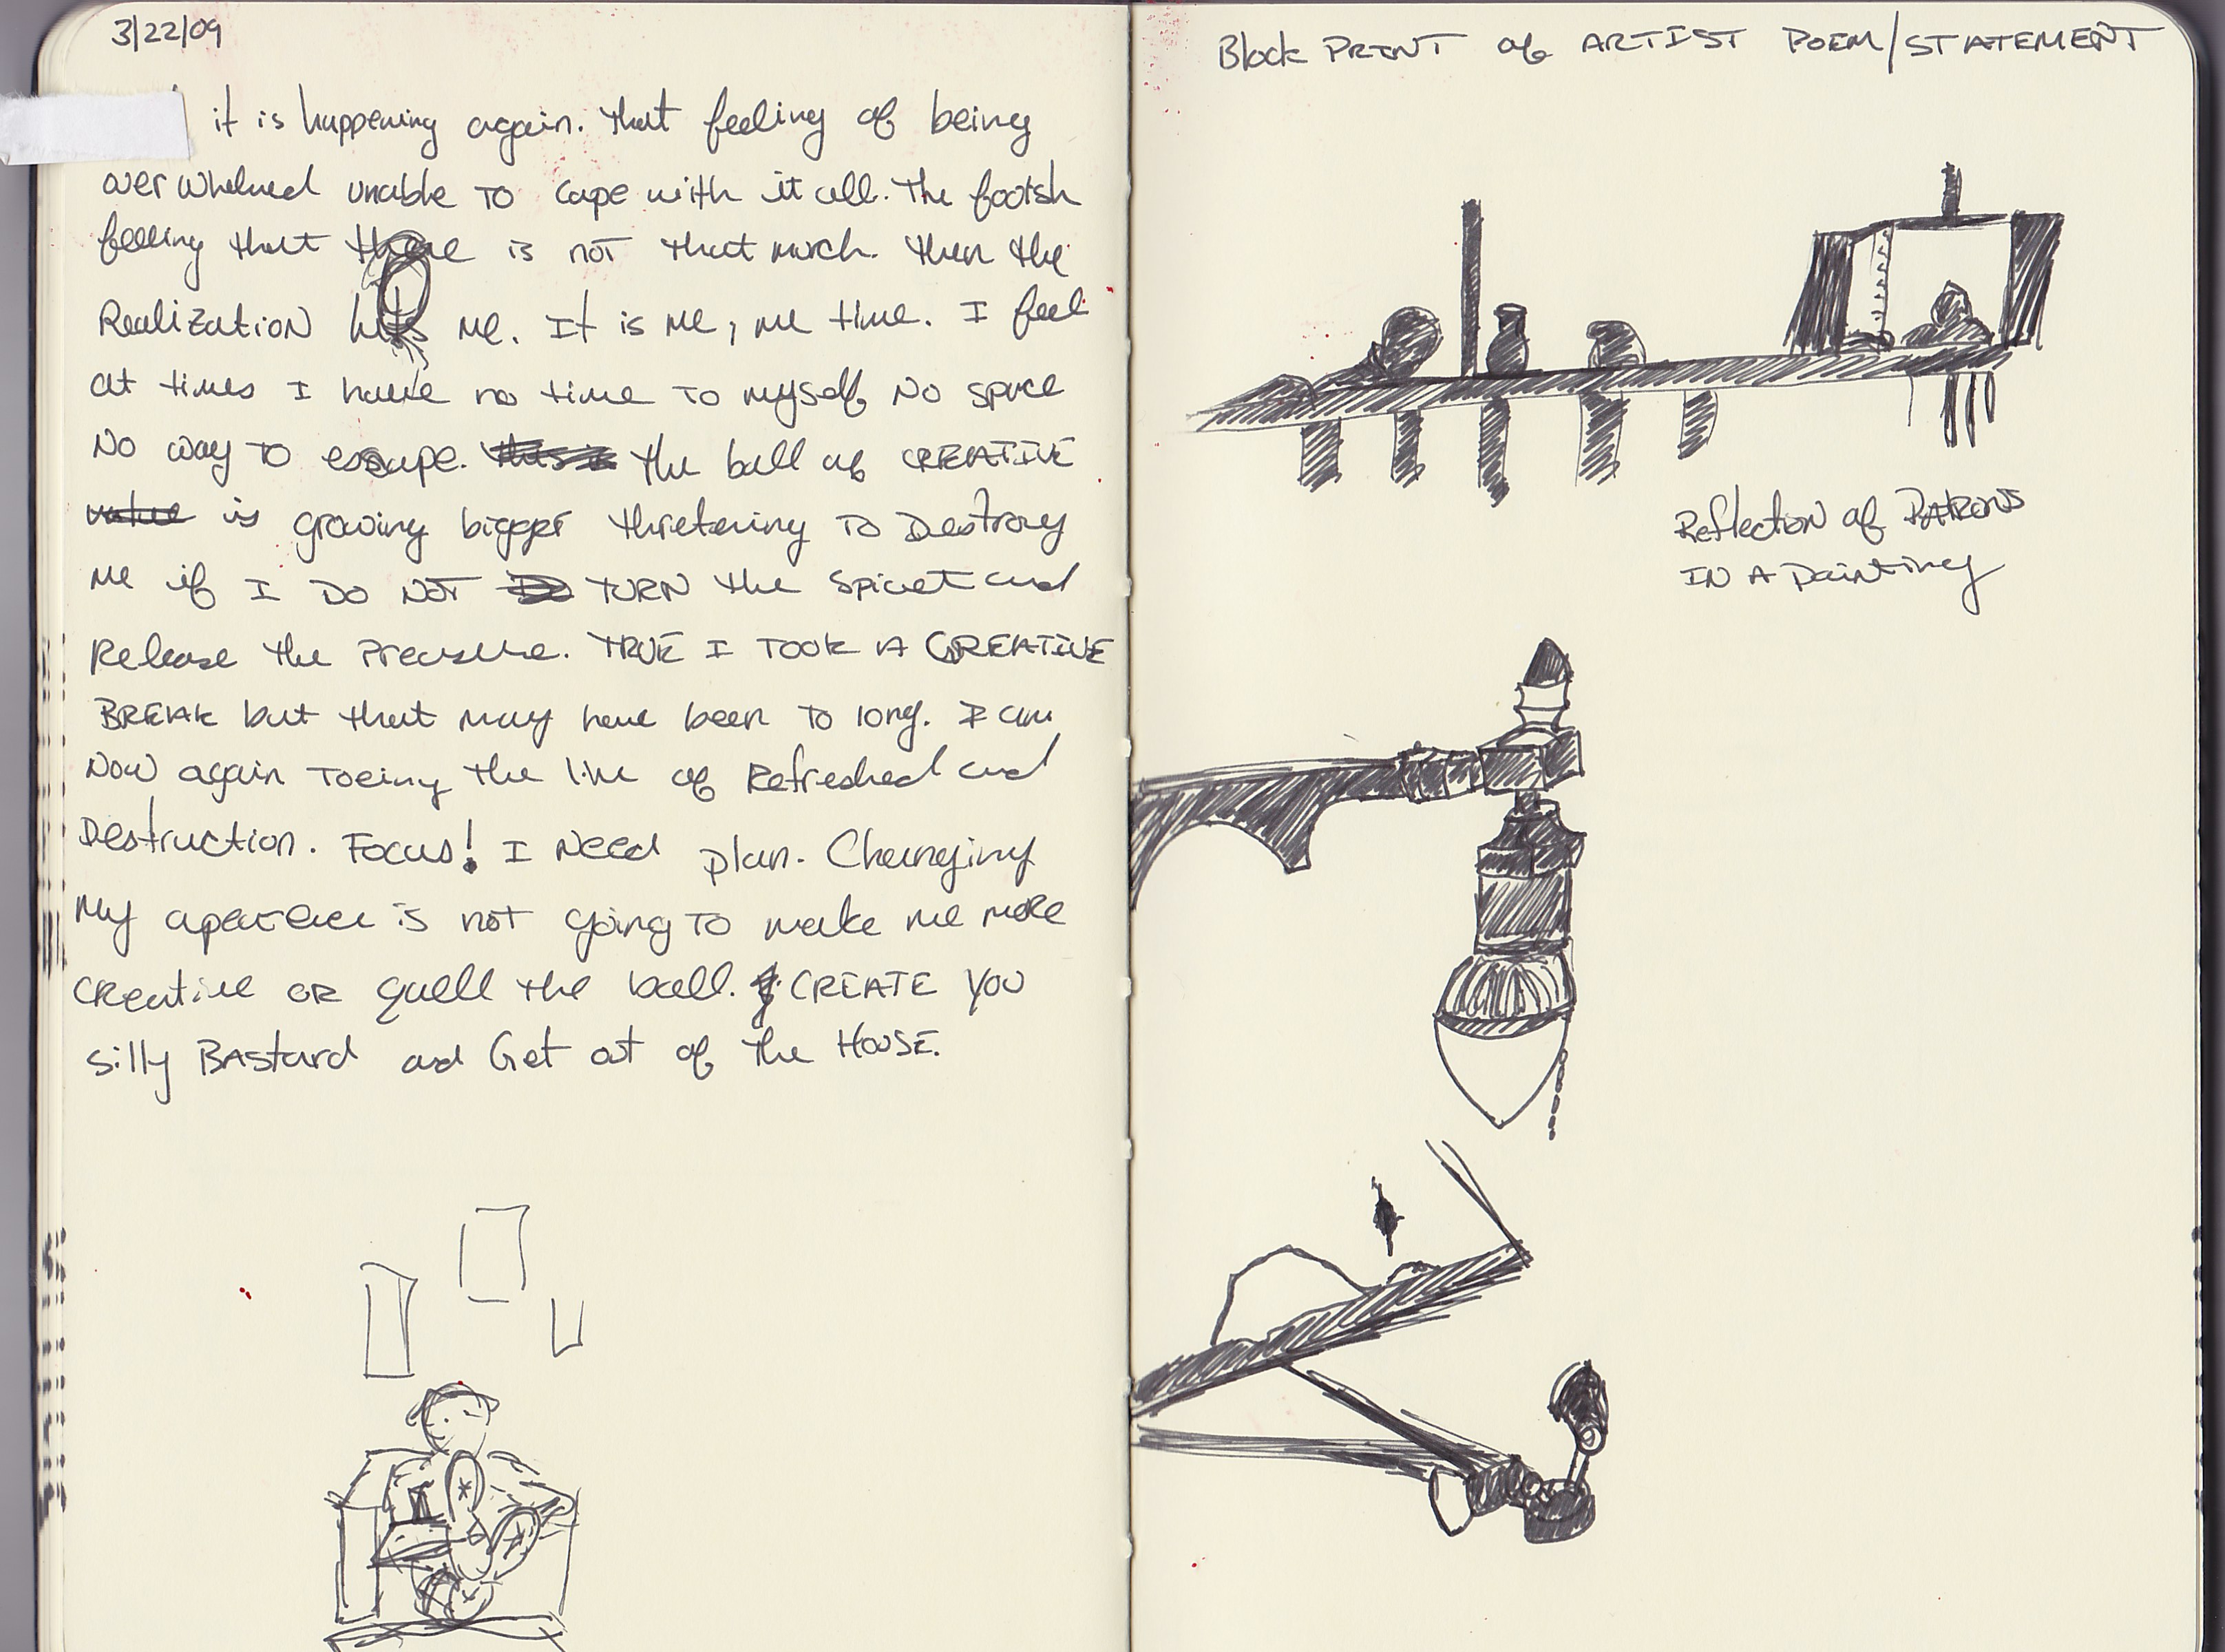 3/22/09
it is happening again. that feeling of being
overwhelmed unable to cope with it all. The foolish
feeling that there is not that much. then the
Realization hits me. It is me, me time. I feel
at times I have no time to myself No space
No way to escape. this is the ball of CREATIVE
value is growing bigger thretening to Destroy
me if I DO NOT Do TURN the spicet and
Release the Preassure. TRUE I TOOK A CREATIVE
BREAK but that may have been to long. I am
NOW again Toeing the line of Refreshed and
Destruction. Focus! I Need plan. Changing
My is not going to make me more
creative OR quell the ball. CREATE YOU
silly BAstard and Get out of the HOUSE.
Block PRINT of ARTIST POEM/STATEMENT
Reflection of PATRONS
IN A Painting